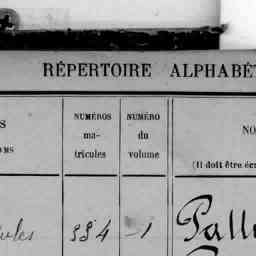 RÉPERTOIRE ALPHABÉT
S
OMS
NUMÉROS
ma-
tricules
NUMÉRO
du
volume
NO
(Il doit être éc
554
1
Pall